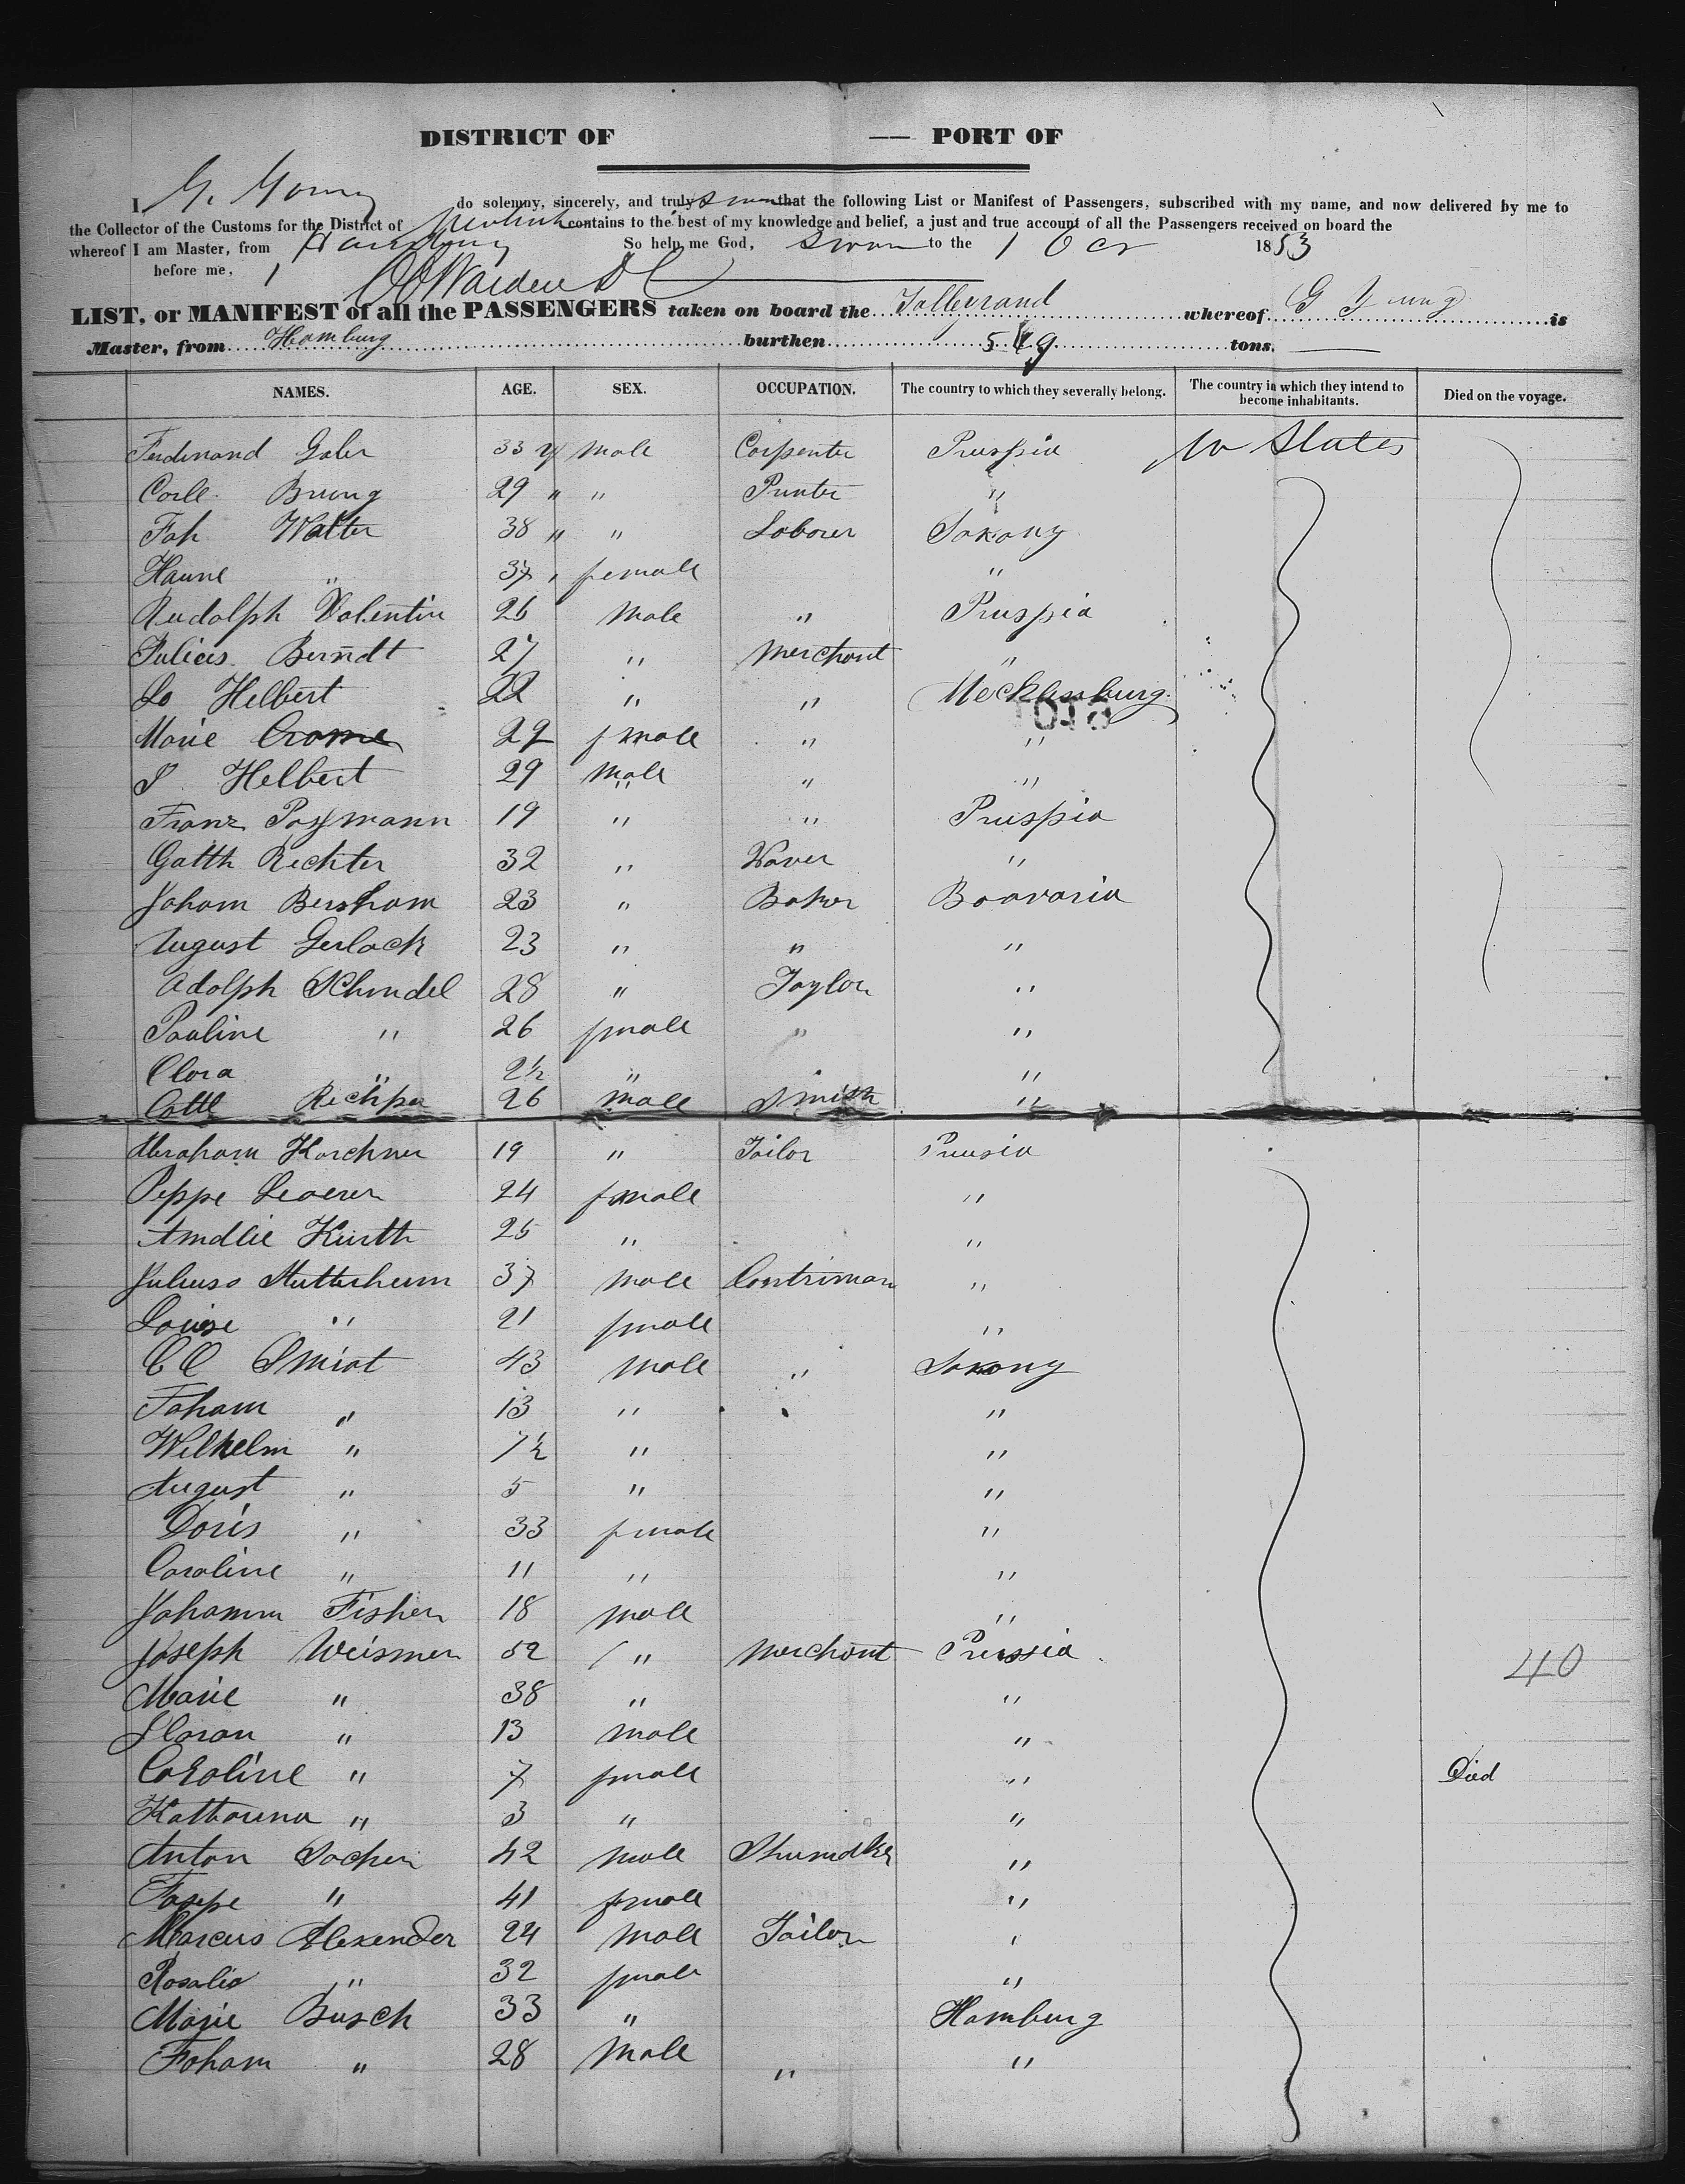 DISTRICT OF —— PORT OF
I, G. Young do solemny, sincerely, and truly swear that the following List or Manifest of Passengers, subscribed with my name, and now delivered by me to
the Collector of the Customs for the District of contains to the best of my knowledge and belief, a just and true account of all the Passengers received on board the
whereof I am Master, from Hamburg So help me God, sworn to the 1 Oct 1853
before me,
LIST, or MANIFEST of all the PASSENGERS taken on board the Talleyrand whereof G Young is
Master, from Hamburg burthen 549 tons.
NAMES. AGE. SEX. OCCUPATION. The country to which they severally belong. The country in which they intend to become inhabitants. Died on the voyage.
Ferdinand Galer 33 y male Carpenter Prussia U States
Carll Brung 29 " " Printer "
Joh Walter 38 " " Laborer Saxony
Hanne " 37 " female "
Rudolph Valentin 26 male " Prussia
Julius Berndt 27 " Merchant "
Lo Helbert 22 " " Mecklenburg
Marie Crome 22 female " "
S Helbert 29 male " "
Franz Passmann 19 " " Prussia
Gotth Richter 32 " Waver "
Joham Bersham 23 " Baker Baavaria
August Gerlach 23 " " "
Adolph Schindel 28 " Taylor "
Pauline " 26 fmale " "
Clora " 2½ " "
Cottl 26 male Smith "
Abraham Korchner 19 " Tailor Prussia
Peppe Lederer 24 fmale "
Amdlie Kurth 25 " "
Juliuss Stutterheim 37 male Contriman "
Louise " 21 fmale "
C C Smiat 43 male " Saxony
Joham " 13 " "
Wilhelm " 7½ " "
August " 5 " "
Doris " 33 fmale "
Caroline " 11 " "
Johamm Fisher 18 male "
Joseph Weismer 52 " Merchant Prussia 40
Marie " 38 " "
Floran " 13 male "
Caroline " 7 fmale " Died
Katharina " 3 " "
Anton Sacher 42 male Shumaker "
" 41 fmale "
Marcus Alexender 24 male Tailor "
Rosalie " 32 fmale "
Marie Busch 33 " Hamburg
Joham " 28 male " "